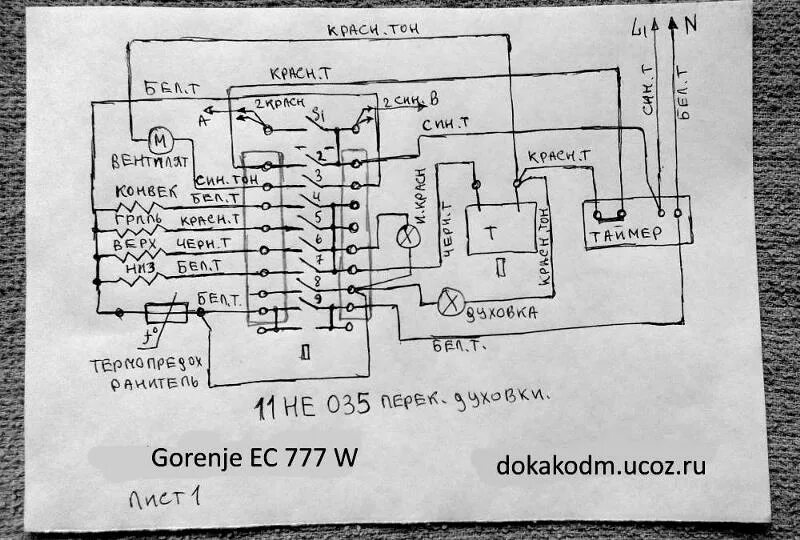 КРАСН. ТОН
L1 N
КРАСН.Т
БЕЛ.Т
2 КРАСН
2 СИН.В
А
S1
СИН.Т
СИН.Т
БЕЛ.Т
М
ВЕНТИЛЯТ
2
КРАСН.Т
СИН.ТОН
3
КОНВЕК
БЕЛ.Т
4
И.КРАСН
ЧЕРН.Т
ГРИЛЬ
КРАСН.Т
5
Т
П
КРАСН.ТОН
ТАЙМЕР
ВЕРХ
ЧЕРН.Т
6
НИЗ
БЕЛ.Т
7
8
БЕЛ.Т.
9
ДУХОВКА
t°
П
БЕЛ.Т.
ТЕРМОПРЕДОХ
РАНИТЕЛЬ
11НЕ 035 ПЕРЕК. ДУХОВКИ.
Gorenje EC 777 W
dokakodm.ucoz.ru
ЛИСТ 1